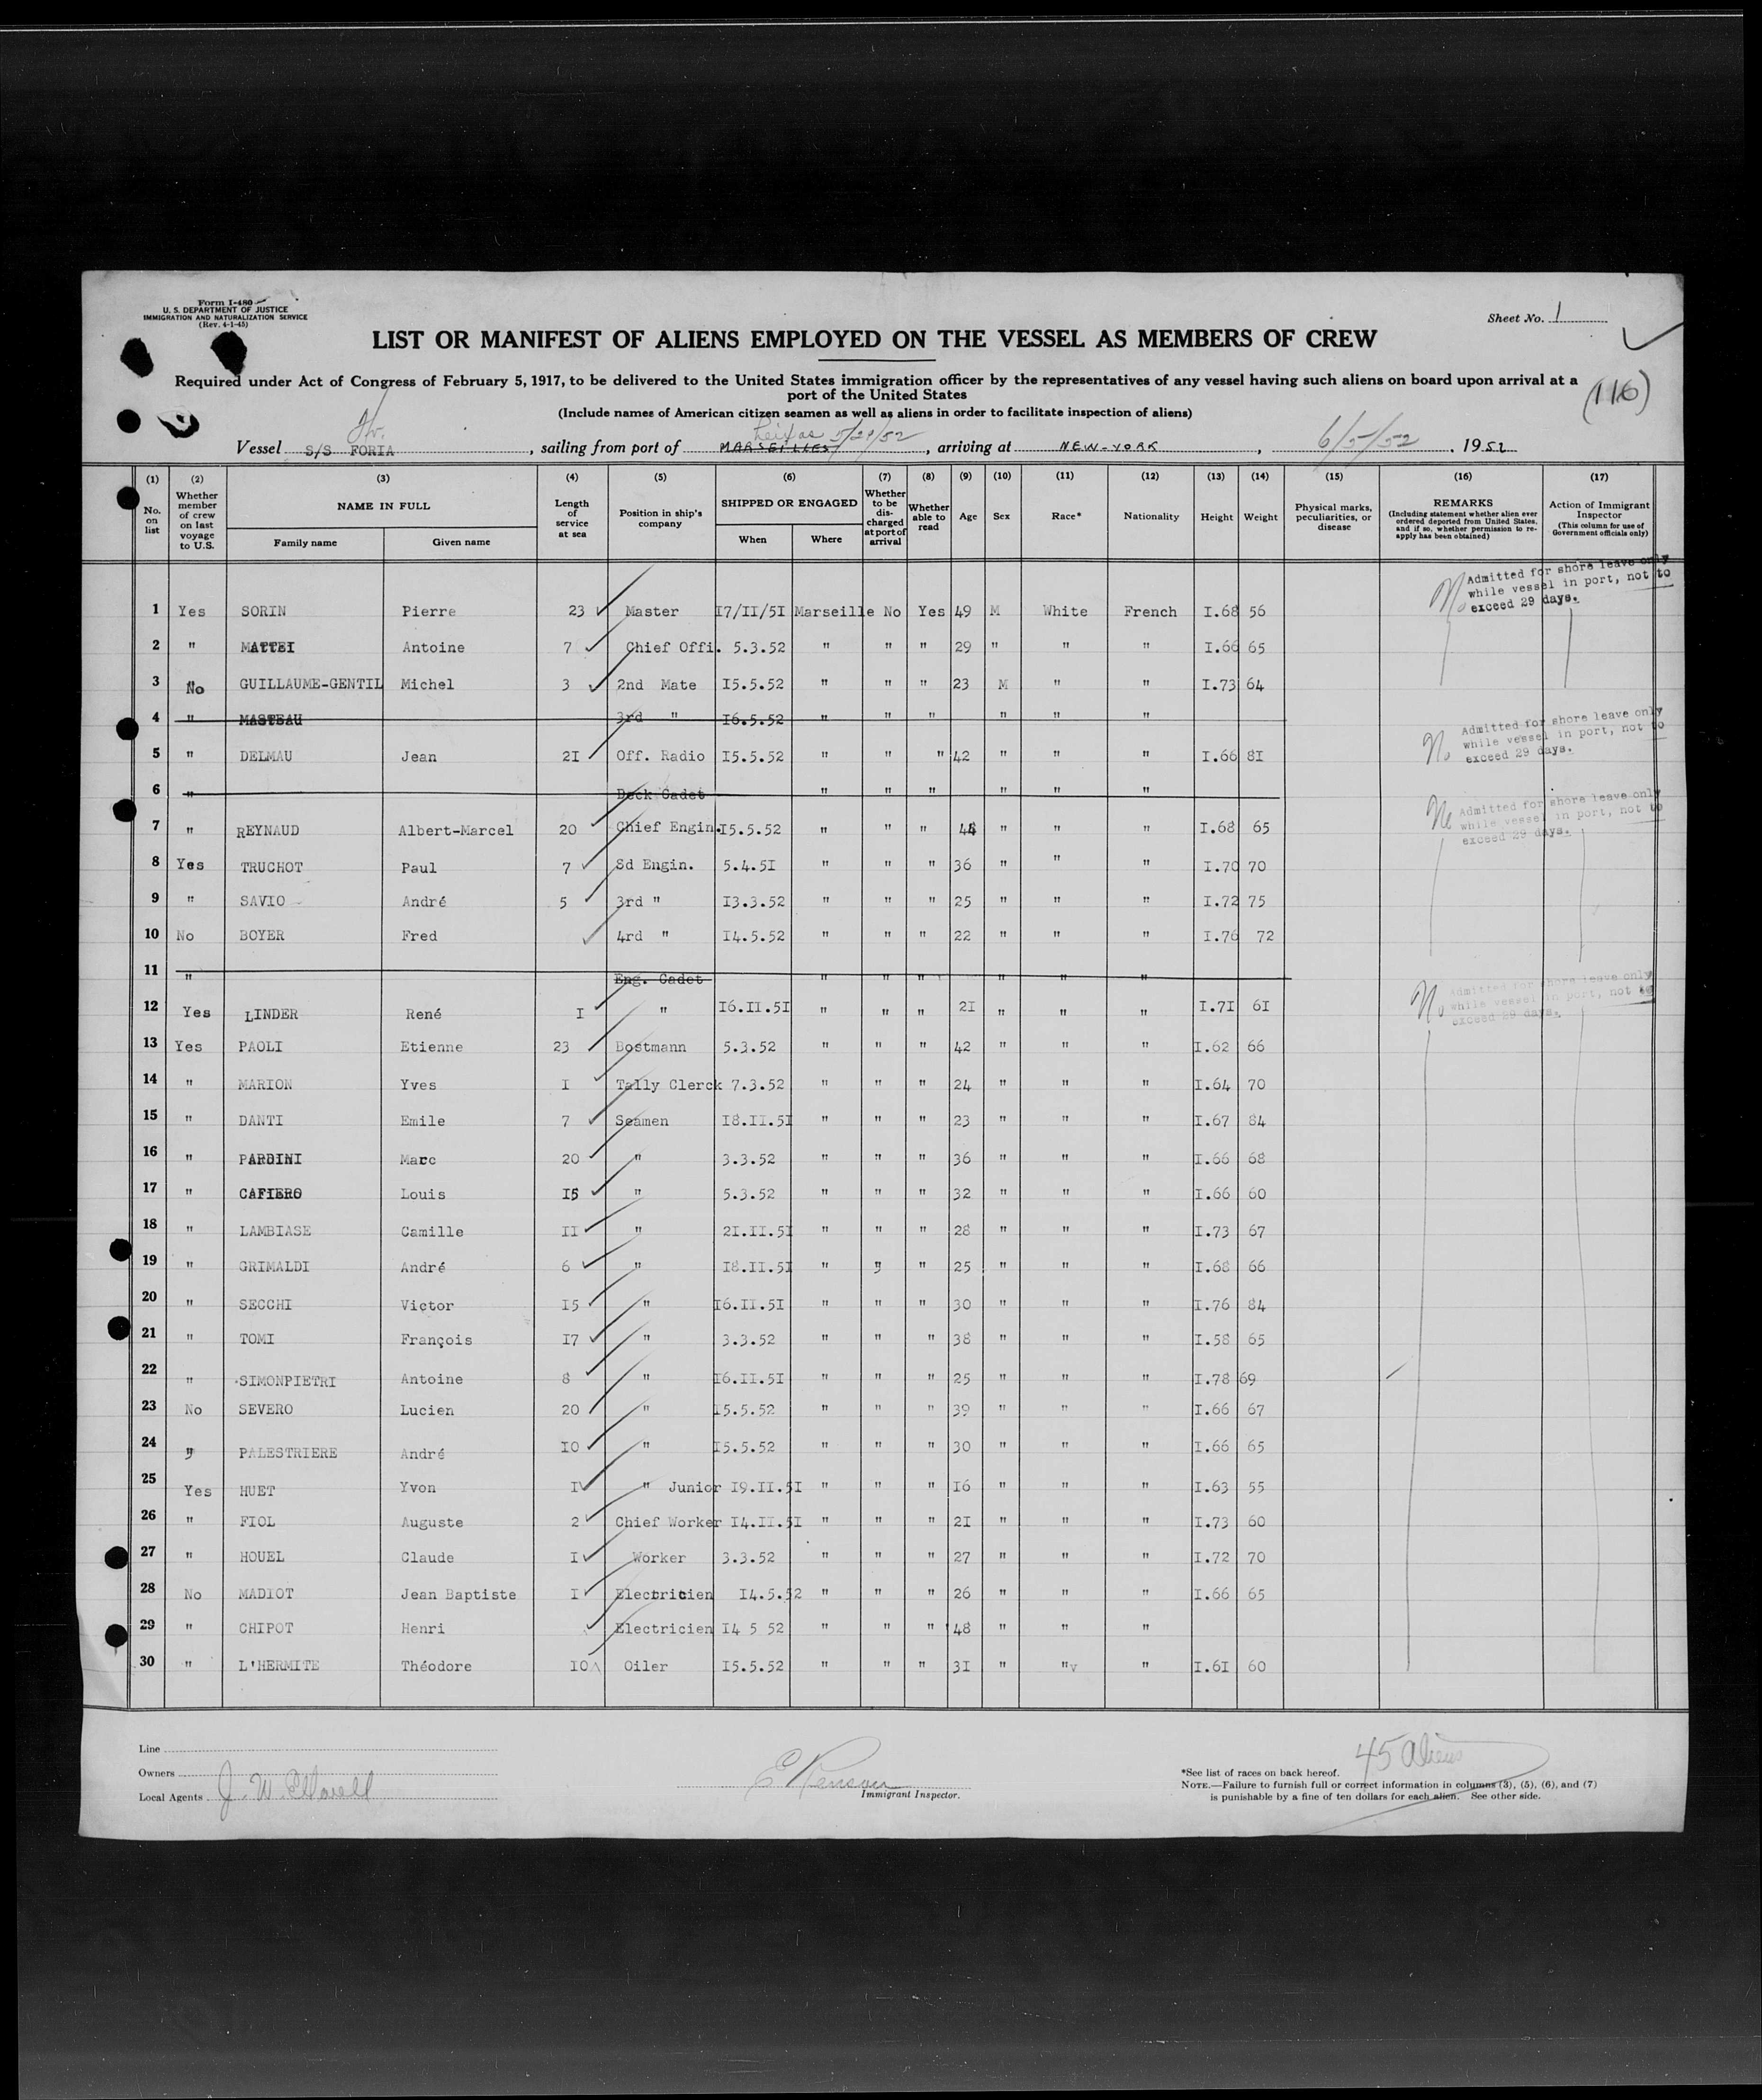 Form I-480
U. S. DEPARTMENT OF JUSTICE
IMMIGRATION AND NATURALIZATION SERVICE
(Rev. 4-1-45)
Sheet No. 1
LIST OR MANIFEST OF ALIENS EMPLOYED ON THE VESSEL AS MEMBERS OF CREW
Required under Act of Congress of February 5, 1917, to be delivered to the United States immigration officer by the representatives of any vessel having such aliens on board upon arrival at a
port of the United States
(116)
(Include names of American citizen seamen as well as aliens in order to facilitate inspection of aliens)
Fr. 5/29/52
Vessel S/S FORIA, sailing from port of MARSEILLES, arriving at NEW-YORK, 6/5/52, 1952
(1) (2) (3) (4) (5) (6) (7) (8) (9) (10) (11) (12) (13) (14) (15) (16) (17)
No. on list
Whether member of crew on last voyage to U.S.
NAME IN FULL
Family name Given name
Length of service at sea
Position in ship's company
SHIPPED OR ENGAGED
When Where
Whether to be discharged at port of arrival
Whether able to read
Age
Sex
Race*
Nationality
Height
Weight
Physical marks, peculiarities, or disease
REMARKS
(Including statement whether alien ever ordered deported from United States, and if so, whether permission to reapply has been obtained)
Action of Immigrant Inspector
(This column for use of Government officials only)
No Admitted for shore leave only
while vessel in port, not to
exceed 29 days.
1 Yes SORIN Pierre 23 Master I7/II/5I Marseille No Yes 49 M White French I.68 56
2 " MATTEI Antoine 7 Chief Offi. 5.3.52 " " " 29 " " " I.66 65
3 No GUILLAUME-GENTIL Michel 3 2nd Mate I5.5.52 " " " 23 M " " I.73 64
4 " MASTEAU 3rd " I6.5.52 " " " " " "
No Admitted for shore leave only
while vessel in port, not to
exceed 29 days.
5 " DELMAU Jean 2I Off. Radio I5.5.52 " " " 42 " " " I.66 8I
6 " Deck Cadet " " " " " "
No Admitted for shore leave only
while vessel in port, not to
exceed 29 days.
7 " REYNAUD Albert-Marcel 20 Chief Engin. I5.5.52 " " " 44 " " " I.68 65
8 Yes TRUCHOT Paul 7 Sd Engin. 5.4.5I " " " 36 " " " I.70 70
9 " SAVIO André 5 3rd " I3.3.52 " " " 25 " " " I.72 75
10 No BOYER Fred 4rd " I4.5.52 " " " 22 " " " I.76 72
11 " Eng. Cadet " " " " " "
No Admitted for shore leave only
while vessel in port, not to
exceed 29 days.
12 Yes LINDER René I " I6.II.5I " " " 2I " " " I.7I 6I
13 Yes PAOLI Etienne 23 Bostmann 5.3.52 " " " 42 " " " I.62 66
14 " MARION Yves I Tally Clerck 7.3.52 " " " 24 " " " I.64 70
15 " DANTI Emile 7 Seamen I8.II.5I " " " 23 " " " I.67 84
16 " PARDINI Marc 20 " 3.3.52 " " " 36 " " " I.66 68
17 " CAFIERO Louis I5 " 5.3.52 " " " 32 " " " I.66 60
18 " LAMBIASE Camille II " 2I.II.5I " " " 28 " " " I.73 67
19 " GRIMALDI André 6 " I8.II.5I " " " 25 " " " I.68 66
20 " SECCHI Victor I5 " I6.II.5I " " " 30 " " " I.76 84
21 " TOMI François I7 " 3.3.52 " " " 38 " " " I.58 65
22 " SIMONPIETRI Antoine 8 " I6.II.5I " " " 25 " " " I.78 69
23 No SEVERO Lucien 20 " I5.5.52 " " " 39 " " " I.66 67
24 " PALESTRIERE André I0 " I5.5.52 " " " 30 " " " I.66 65
25 Yes HUET Yvon I " Junior I9.II.5I " " " I6 " " " I.63 55
26 " FIOL Auguste 2 Chief Worker I4.II.5I " " " 2I " " " I.73 60
27 " HOUEL Claude I Worker 3.3.52 " " " 27 " " " I.72 70
28 No MADIOT Jean Baptiste I Electricien I4.5.52 " " " 26 " " " I.66 65
29 " CHIPOT Henri Electricien I4 5 52 " " " 48 " " "
30 " L'HERMITE Théodore I0 Oiler I5.5.52 " " " 3I " " " I.6I 60
Line
Owners
Local Agents J. W. Elwell
Immigrant Inspector.
45 Aliens
*See list of races on back hereof.
NOTE.—Failure to furnish full or correct information in columns (3), (5), (6), and (7)
is punishable by a fine of ten dollars for each alien. See other side.